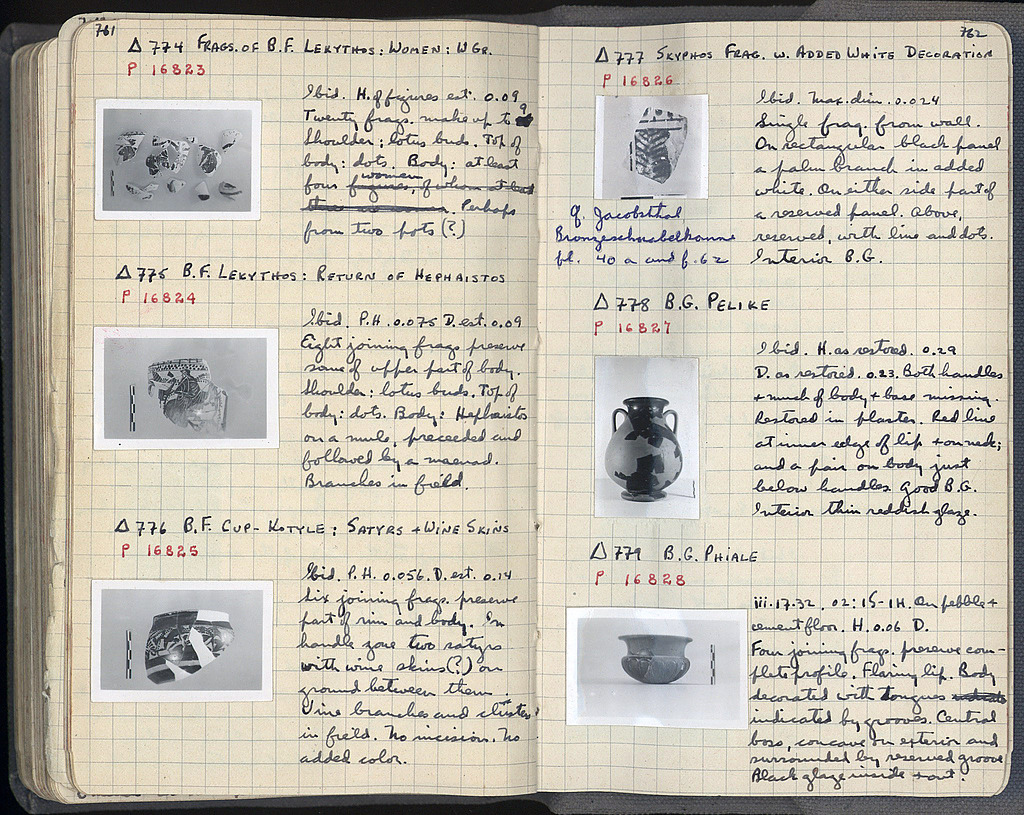 761
Δ 774 FRAGS. OF B.F. LEKYTHOS: WOMEN: W GR.
P 16823
Ibid. H. of figures est. 0.09
Twenty frags. make up to 9
Shoulder; lotus buds. Top of
body: dots. Body: at least
four women
figures, of whom at least
three are women. Perhaps
from two pots (?)
Δ 775 B.F. LEKYTHOS: RETURN OF HEPHAISTOS
P 16824
Ibid. P.H. 0.075 D. est. 0.09
Eight joining frags preserve
some of upper part of body.
Shoulder: lotus buds. Top of
body: dots. Body: Hephaistos
on a mule, preceeded and
followed by a maenad.
Branches in field.
Δ 776 B.F. CUP-KOTYLE; SATYRS + WINE SKINS
P 16825
Ibid. P.H. 0.056. D. est. 0.14
Six joining frags. preserve
part of rim and body. In
handle zone two satyrs
with wine skins (?) on
ground between them.
Vine branches and clusters
in field. No incision. No
added color.
762
Δ 777 SKYPHOS FRAG. W. ADDED WHITE DECORATION
P 16826
Ibid. Max. dim. 0.024
Single frag. from wall.
On rectangular black panel
a palm branch in added
white. On either side part of
a reserved panel. Above,
reserved, with line and dots.
Interior B.G.
cf. Jacobsthal
Bronzeschnabelkanne
pl. 40 a and p. 62
Δ 778 B.G. PELIKE
P 16827
Ibid. H. as restored. 0.29
D. as restored. 0.23. Both handles
+ much of body + base missing.
Restored in plaster. Red line
at inner edge of lip + on neck;
and a pair on body just
below handles Good B.G.
Interior thin reddish glaze.
Δ 779 B.G. PHIALE
P 16828
iii.17.32. 02:15-1H. On pebble +
cement floor. H. 0.06 D.
Four joining frags. preserve com-
plete profile. Flaring lip. Body
decorated with tongues
indicated by grooves. Central
boss, concave on exterior and
surrounded by reserved groove
Black glaze inside + out.